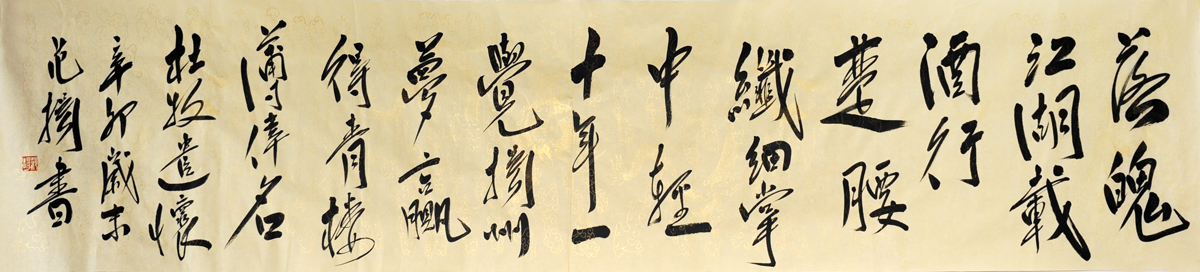 落魄
江湖載
酒行
楚腰
纖細掌
中輕
十年一
覺揚州
夢贏
得青樓
薄倖名
杜牧遣懷
辛卯歲末
范揚書